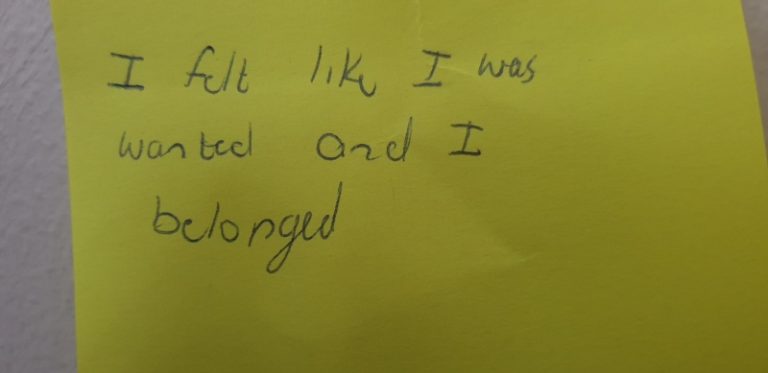 I felt like I was
wanted and I
belonged